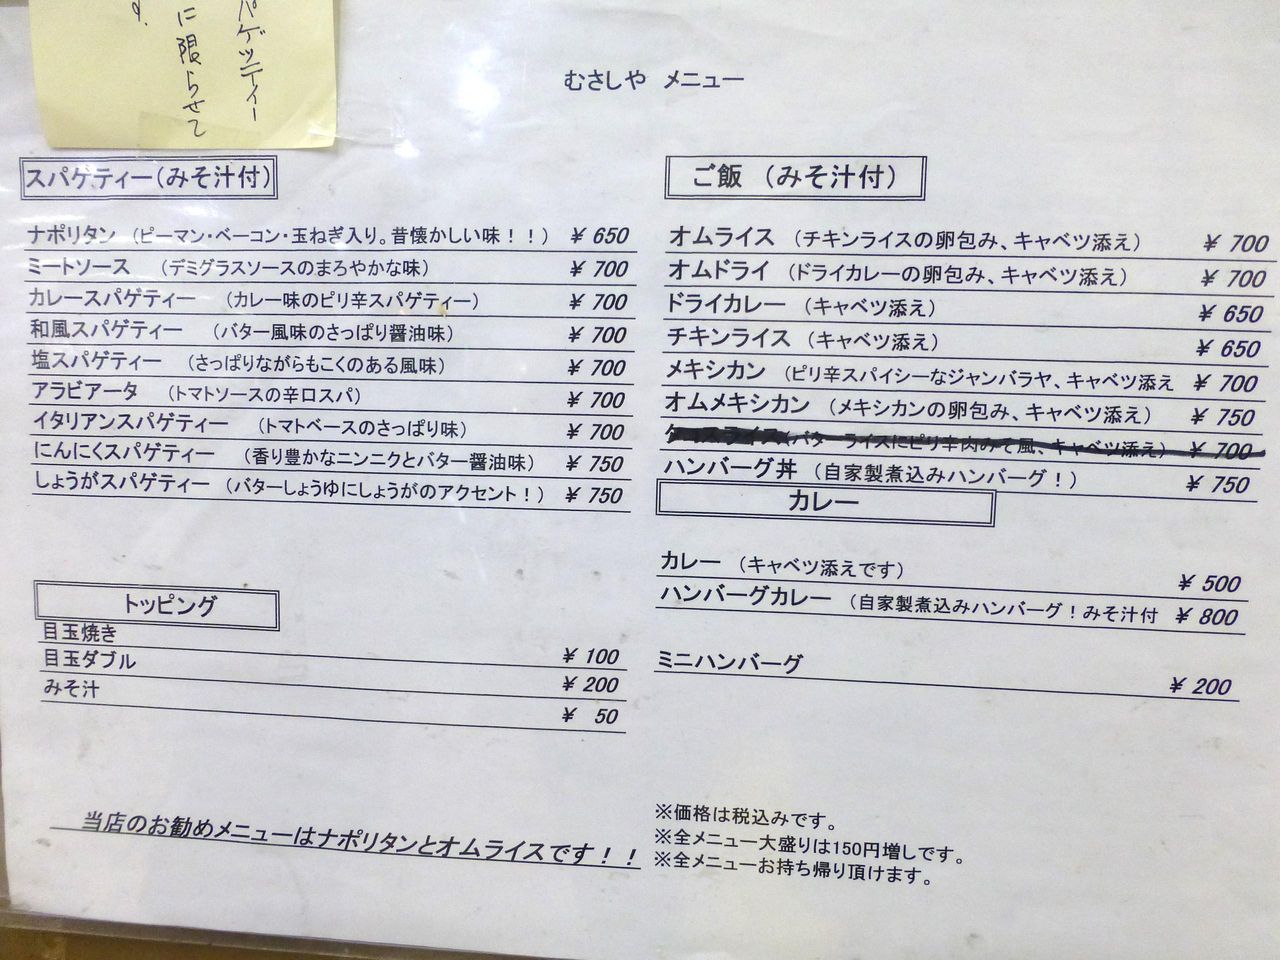 パゲッティー
に限らせて
す.
むさしや メニュー
スパゲティー(みそ汁付)
ナポリタン (ピーマン・ベーコン・玉ねぎ入り。昔懐かしい味！！) ¥ 650
ミートソース (デミグラスソースのまろやかな味) ¥ 700
カレースパゲティー (カレー味のピリ辛スパゲティー) ¥ 700
和風スパゲティー (バター風味のさっぱり醤油味) ¥ 700
塩スパゲティー (さっぱりながらもこくのある風味) ¥ 700
アラビアータ (トマトソースの辛口スパ) ¥ 700
イタリアンスパゲティー (トマトベースのさっぱり味) ¥ 700
にんにくスパゲティー (香り豊かなニンニクとバター醤油味) ¥ 750
しょうがスパゲティー (バターしょうゆにしょうがのアクセント！) ¥ 750
トッピング
目玉焼き ¥ 100
目玉ダブル ¥ 200
みそ汁 ¥ 50
当店のお勧めメニューはナポリタンとオムライスです！！
ご飯 (みそ汁付)
オムライス (チキンライスの卵包み、キャベツ添え) ¥ 700
オムドライ (ドライカレーの卵包み、キャベツ添え) ¥ 700
ドライカレー (キャベツ添え) ¥ 650
チキンライス (キャベツ添え) ¥ 650
メキシカン (ピリ辛スパイシーなジャンバラヤ、キャベツ添え ¥ 700
オムメキシカン (メキシカンの卵包み、キャベツ添え) ¥ 750
(バターライスにピリ辛肉みそ風、キャベツ添え) ¥ 700
ハンバーグ丼 (自家製煮込みハンバーグ！) ¥ 750
カレー
カレー (キャベツ添えです) ¥ 500
ハンバーグカレー (自家製煮込みハンバーグ！みそ汁付 ¥ 800
ミニハンバーグ ¥ 200
※価格は税込みです。
※全メニュー大盛りは150円増しです。
※全メニューお持ち帰り頂けます。